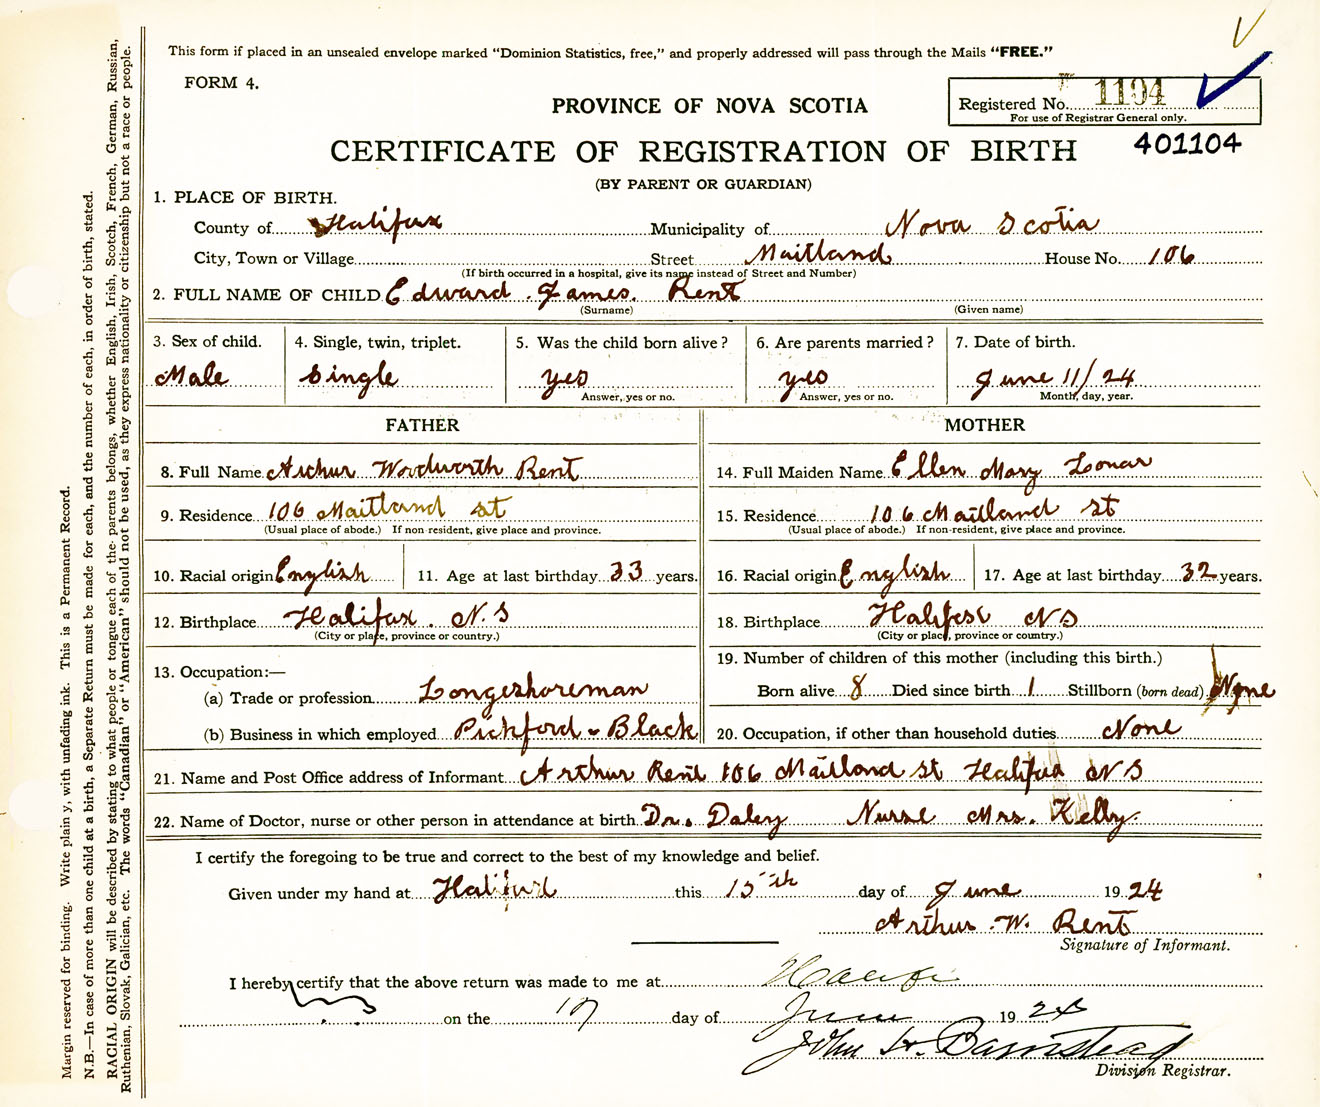 This form if placed in an unsealed envelope marked "Dominion Statistics, free," and properly addressed will pass through the Mails "FREE."
FORM 4.
PROVINCE OF NOVA SCOTIA
Registered No. 1194
For use of Registrar General only.
401104
CERTIFICATE OF REGISTRATION OF BIRTH
(BY PARENT OR GUARDIAN)
1. PLACE OF BIRTH.
County of Halifax Municipality of Nova Scotia
City, Town or Village Street Maitland House No. 106
(If birth occurred in a hospital, give its name instead of Street and Number)
2. FULL NAME OF CHILD Edward James Rent
(Surname) (Given name)
3. Sex of child. 4. Single, twin, triplet. 5. Was the child born alive? 6. Are parents married? 7. Date of birth.
Male Single yes yes June 11/24
Answer, yes or no. Answer, yes or no. Month, day, year.
FATHER MOTHER
8. Full Name Arthur Woodworth Rent 14. Full Maiden Name Ellen Mary Lonar
9. Residence 106 Maitland St 15. Residence 106 Maitland St
(Usual place of abode.) If non-resident, give place and province. (Usual place of abode.) If non-resident, give place and province.
10. Racial origin English 11. Age at last birthday 33 years. 16. Racial origin English 17. Age at last birthday 32 years.
12. Birthplace Halifax. N.S 18. Birthplace Halifax NS
(City or place, province or country.) (City or place, province or country.)
13. Occupation:— 19. Number of children of this mother (including this birth.)
(a) Trade or profession Longeshoreman Born alive 8 Died since birth 1 Stillborn (born dead) None
(b) Business in which employed Pickford & Black 20. Occupation, if other than household duties None
21. Name and Post Office address of Informant Arthur Rent 106 Maitland St Halifax NS
22. Name of Doctor, nurse or other person in attendance at birth Dr. Daley Nurse Mrs. Kelly.
I certify the foregoing to be true and correct to the best of my knowledge and belief.
Given under my hand at Halifax this 15th day of June 1924
Arthur W. Rent
Signature of Informant.
I hereby certify that the above return was made to me at
on the 17 day of June 1924
John H. Barnstead
Division Registrar.
Margin reserved for binding. Write plainly, with unfading ink. This is a Permanent Record.
N.B.—In case of more than one child at a birth, a Separate Return must be made for each, and the number of each, in order of birth, stated.
RACIAL ORIGIN will be described by stating to what people or tongue each of the parents belongs, whether English, Irish, Scotch, French, German, Russian,
Ruthenian, Slovak, Galician, etc. The words "Canadian" or "American" should not be used, as they express nationality or citizenship but not a race or people.